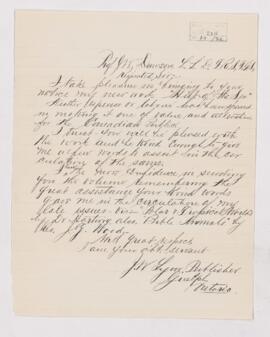 Dawson L L D F.R.S.
Respected Sir,
I take pleasure in bringing to your
notice my new work
Neither expense or labour has been spared
in making it one of value, and attraction
for the Canadian public
I trust you will be pleased with
the work and be kind enough to give
me a few words to assist in the cir
culation of the same.
I the more Confidence in sending
you the volume remembering the
great assistance your kind words
gave me in the circulation of my
late issues - Polar & Tropical Worlds
by Dr Hartwig also Bible Animals by
Rev. J. G. Wood.
With Great respect
I am Your obt. servant
J W Lyon, Publisher
Guelph
Ontario